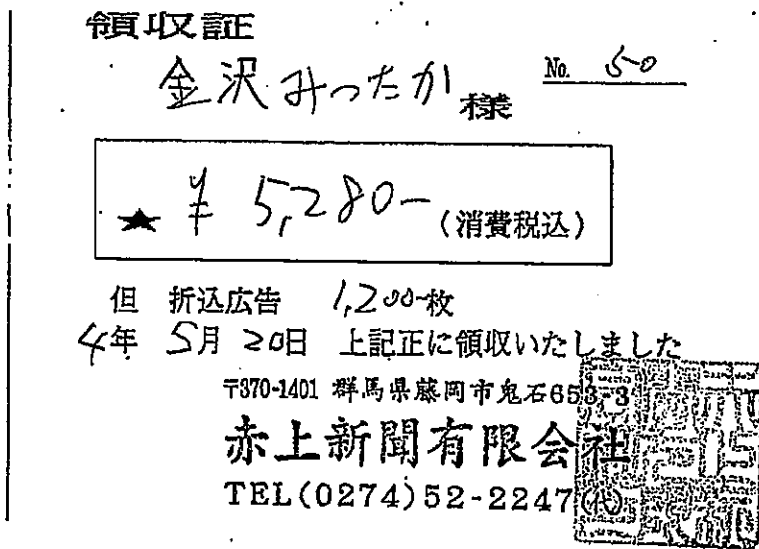 領収証
金沢みつたか様
No. 50
★ ¥5,280-(消費税込)
但 折込広告 1,200枚
4年 5月 20日 上記正に領収いたしました
〒370-1401 群馬県藤岡市鬼石653-3
赤上新聞有限会社
TEL(0274)52-2247(代)